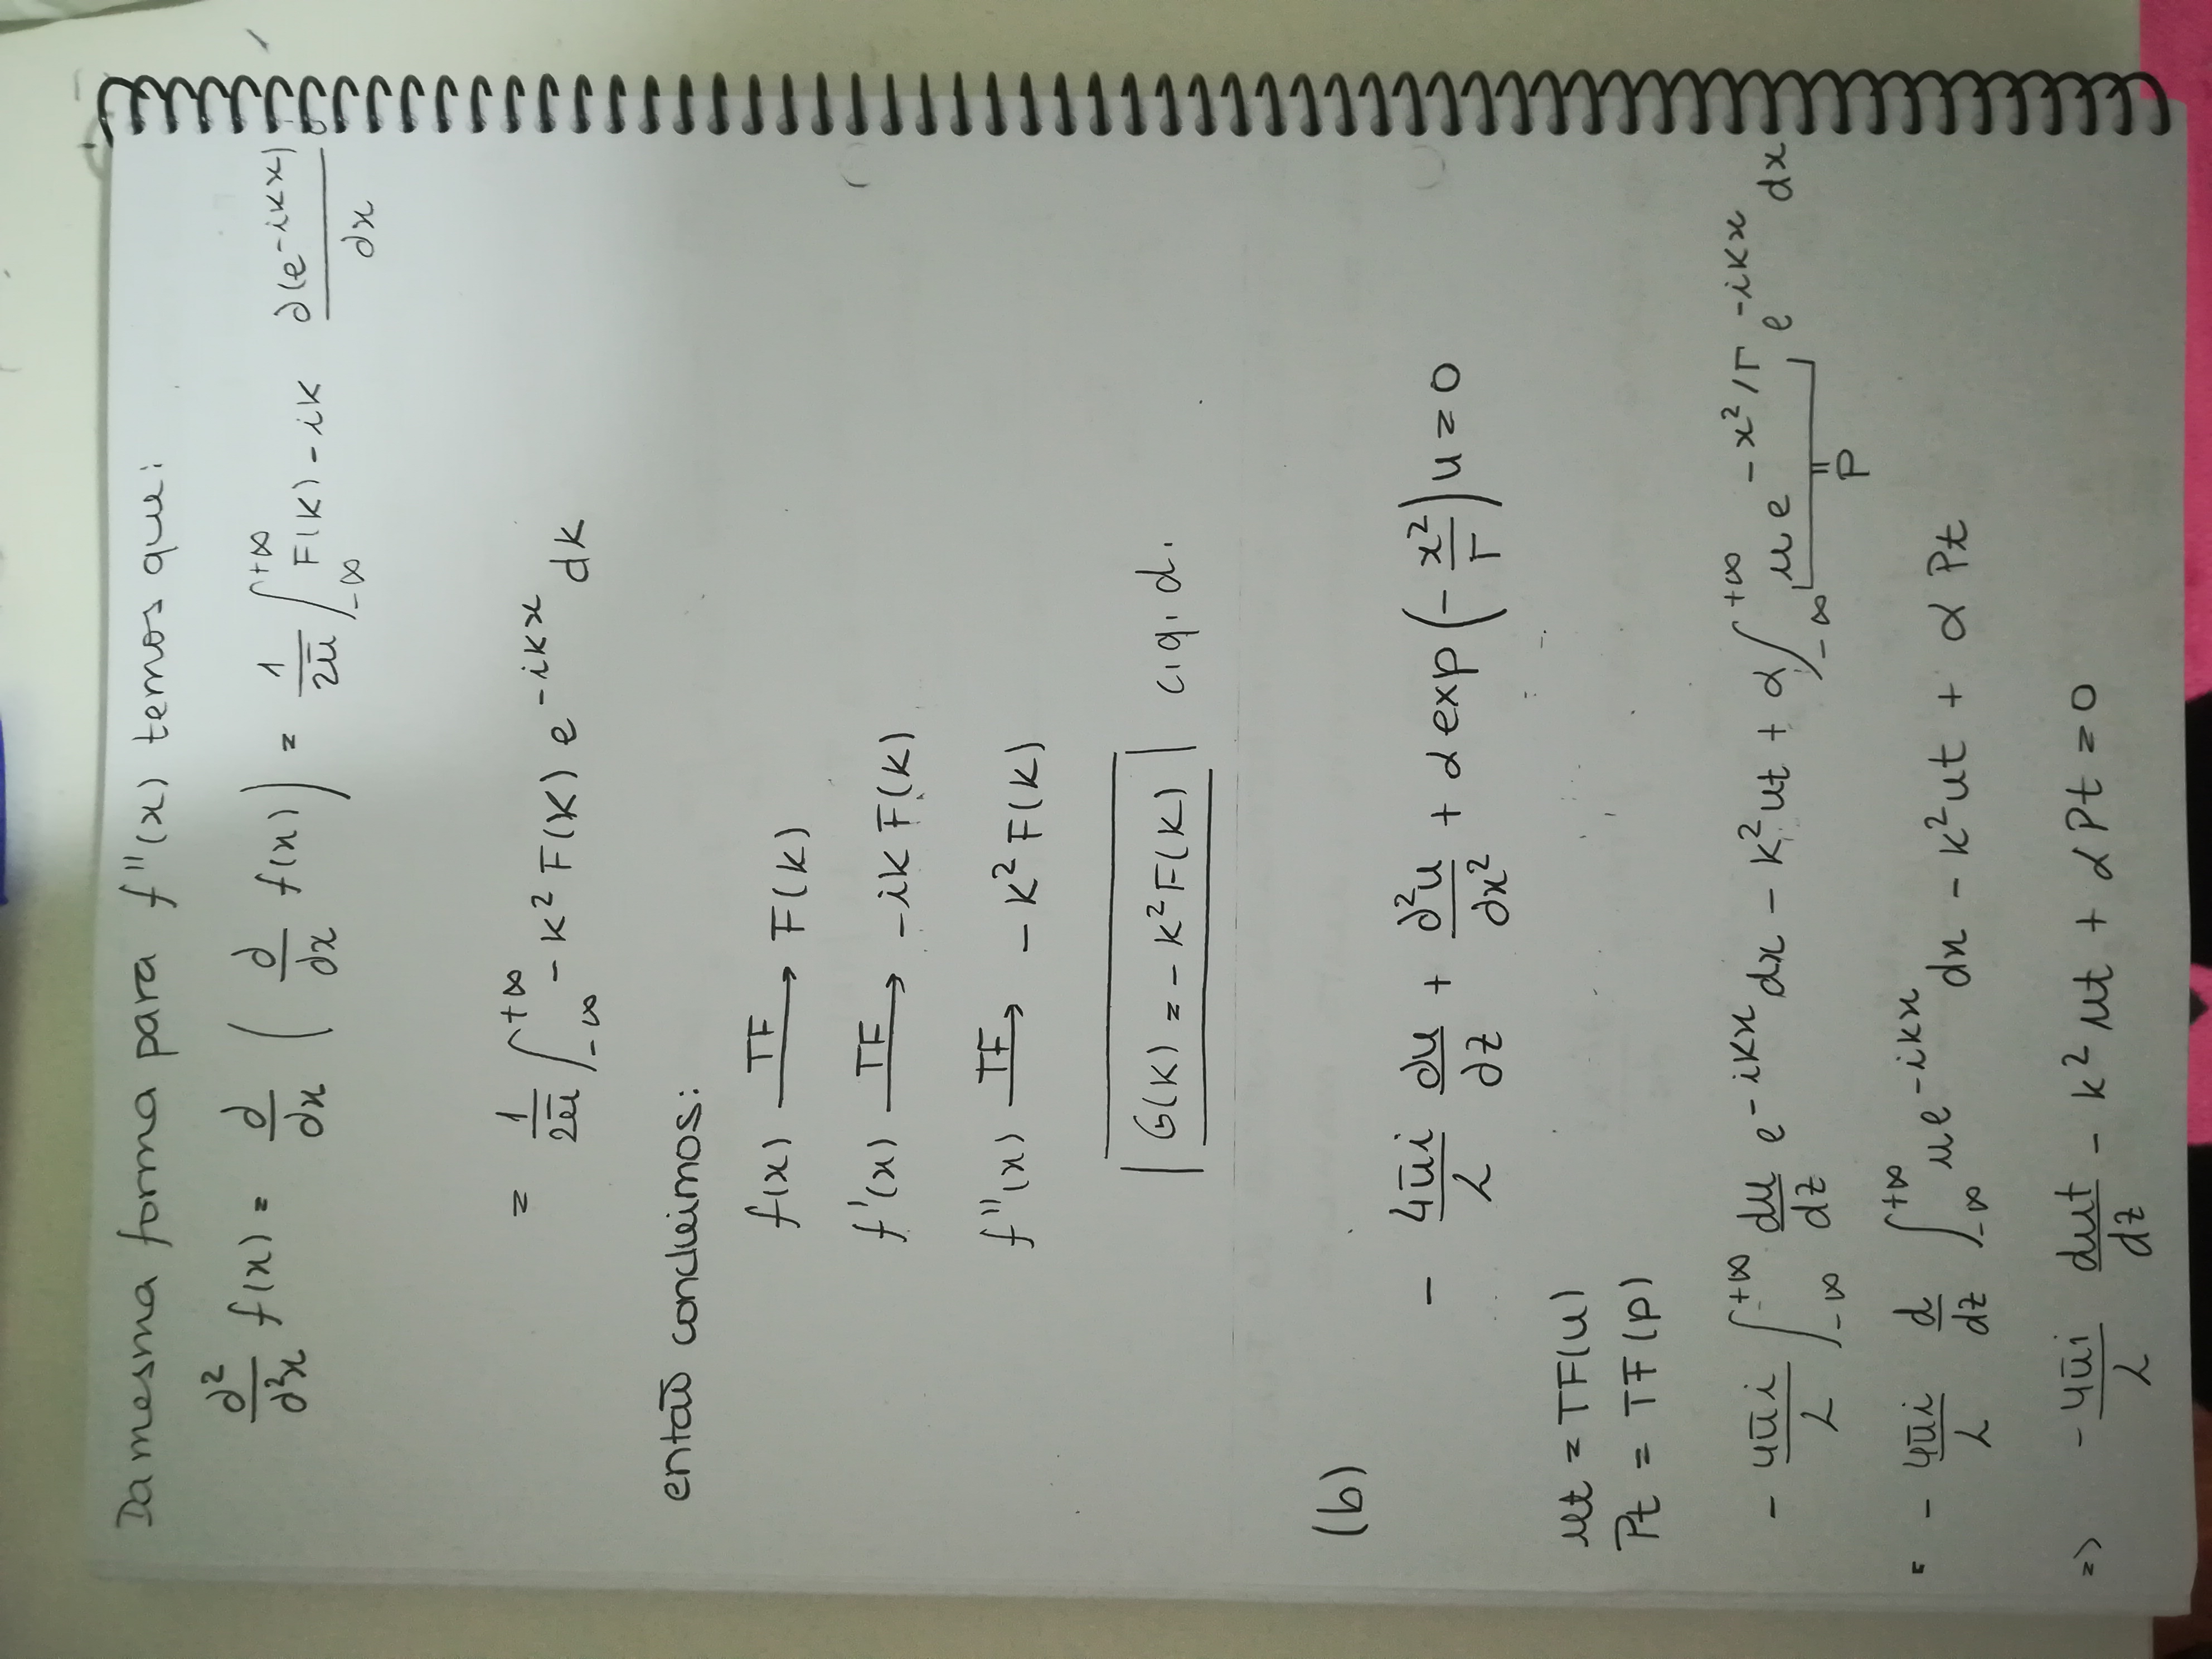 Da mesma forma para f''(x) temos que:
∂²/∂²x f(x) = ∂/∂x ( ∂/∂x f(x) ) = 1/2π ∫_{-∞}^{+∞} F(k) - ik ∂(e^{-ikx})/∂x
= 1/2π ∫_{-∞}^{+∞} - k² F(k) e^{-ikx} dk
então concluimos:
f(x) —TF→ F(k)
f'(x) —TF→ -ik F(k)
f''(x) —TF→ - k² F(k)
G(k) = - k² F(k) c.q.d.
(b)
- 4πi/λ ∂u/∂z + ∂²u/∂x² + α exp(- x²/Γ) u = 0
ut = TF(u)
Pt = TF(p)
- 4πi/λ ∫_{-∞}^{+∞} du/dz e^{-ikx} dx - k² ut + α ∫_{-∞}^{+∞} u e^{-x²/Γ} e^{-ikx} dx
=
P
= - 4πi/λ d/dz ∫_{-∞}^{+∞} u e^{-ikx} dx - k² ut + α Pt
=> - 4πi/λ dut/dz - k² ut + α Pt = 0